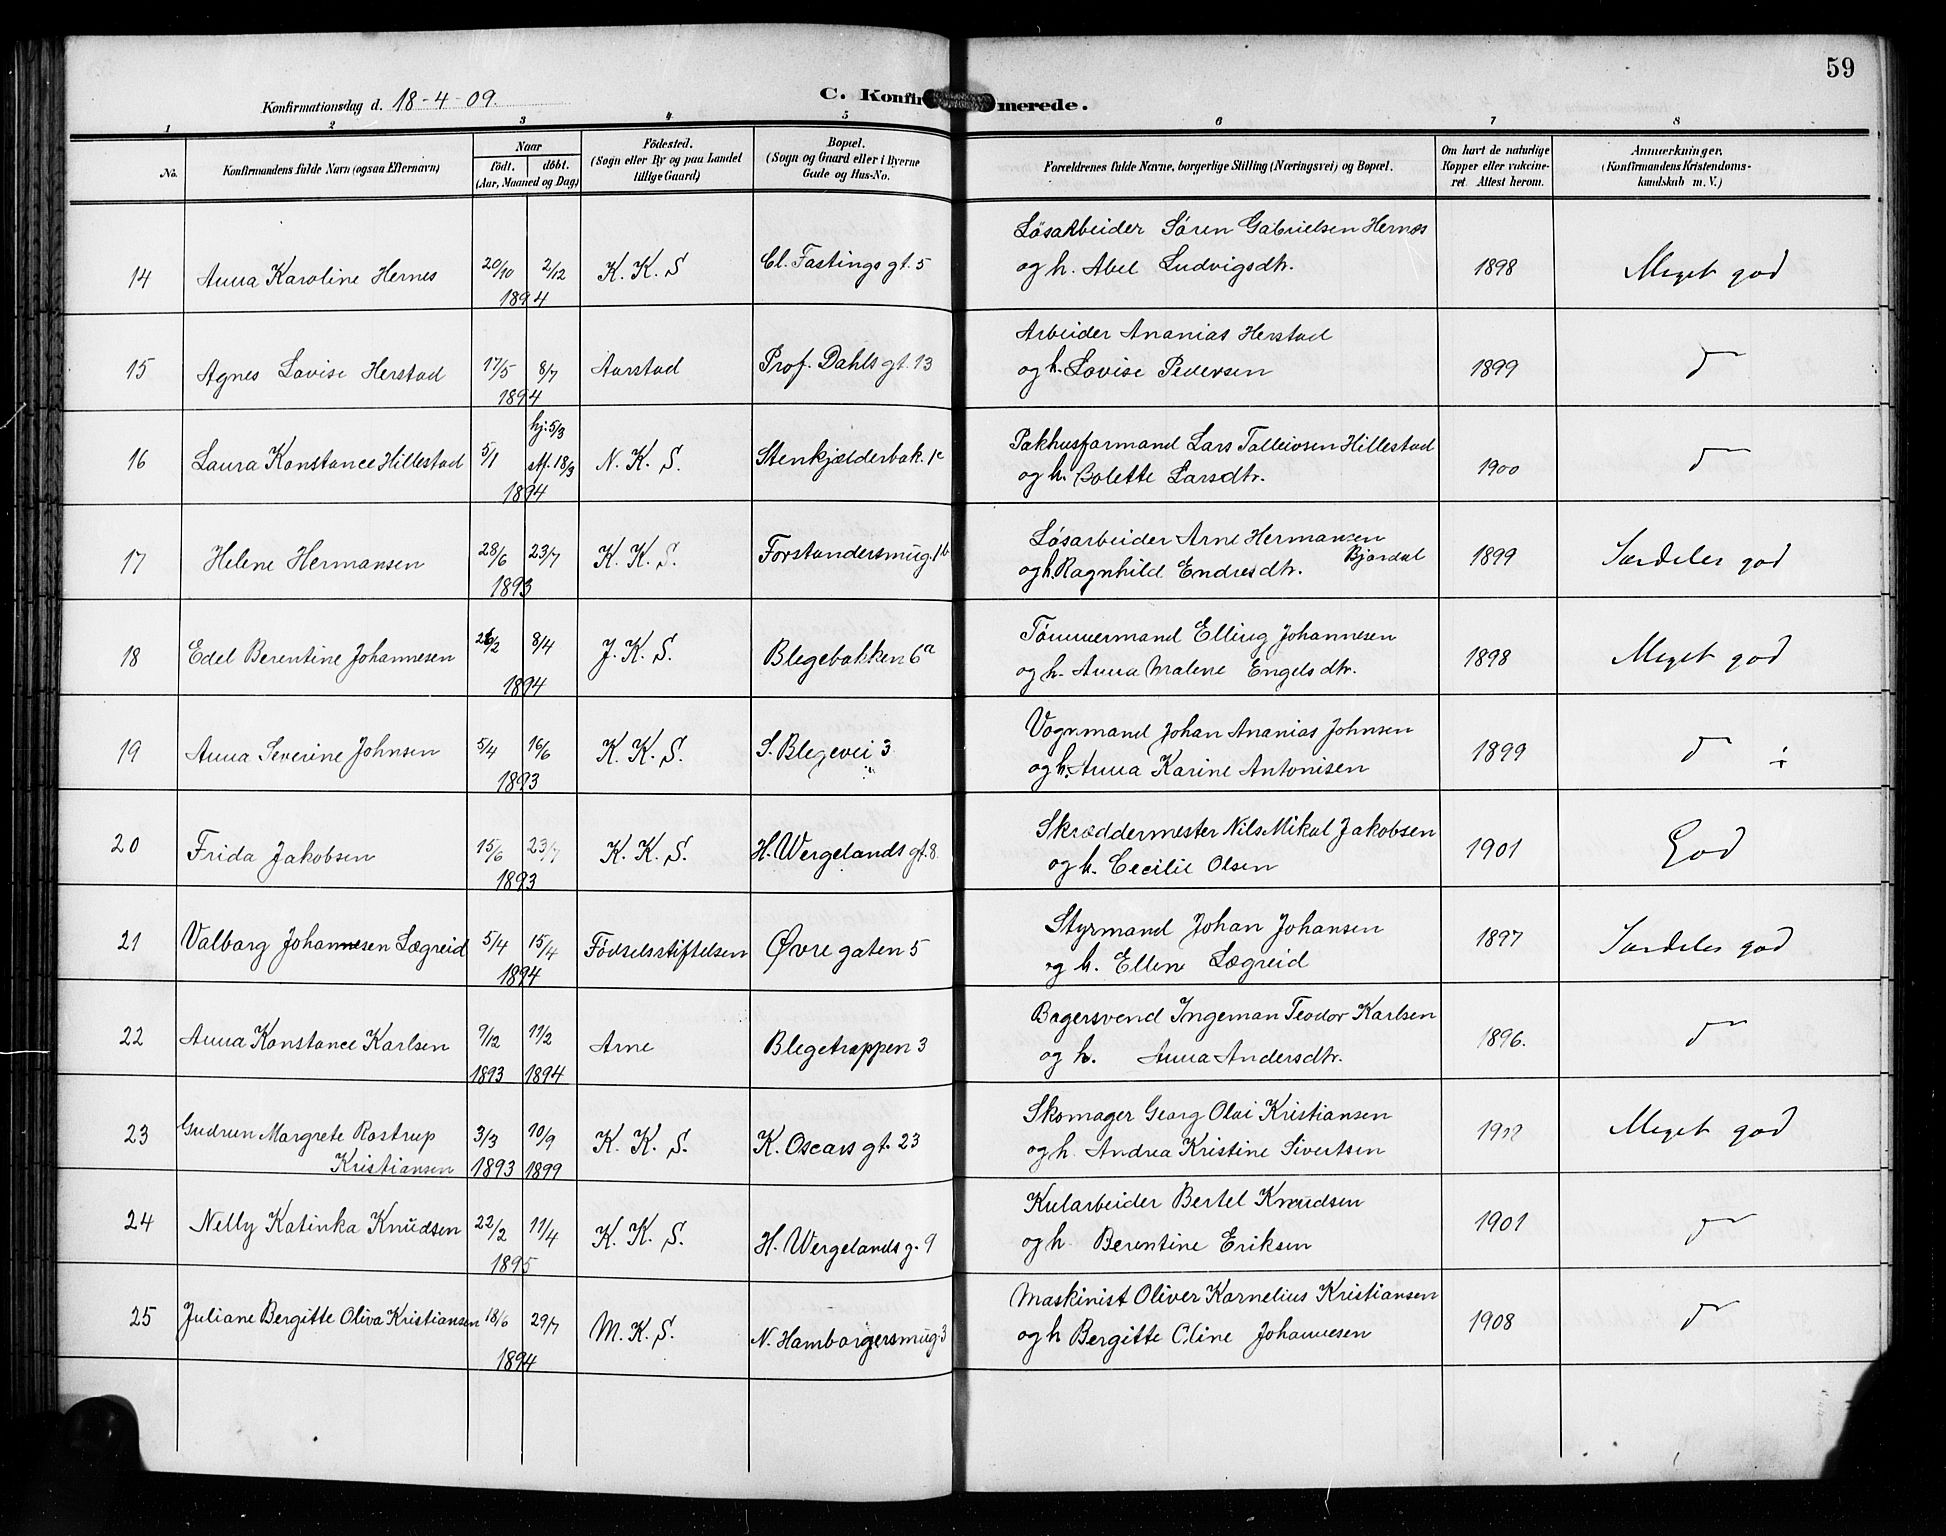 59
Konfirmationsdag d. 18-4-09.
C. Konfirmerede.
1 2 3 4 5 6 7 8
No.
Konfirmandens fulde Navn (ogsaa Efternavn)
Naar
født. døbt.
(Aar, Maaned og Dag)
Födested.
(Sogn eller By og paa Landet
tillige Gaard)
Bopæl.
(Sogn og Gaard eller i Byerne
Gade og Hus-No.
Forældrenes fulde Navne, borgerlige Stilling (Næringsvei) og Bopæl.
Om havt de naturlige
Kopper eller vakcine-
ret. Attest herom.
Anmærkninger.
(Konfirmandens Kristendoms-
kundskab m. V.)
14 Anna Karoline Hernes 20/10 2/12 1894 K. K. S Cl. Fastings gt. 5
Løsarbeider Søren Gabrielsen Hernæs
og h. Abel Ludvigsdtr. 1898 Meget god
15 Agnes Lovise Herstad 17/5 8/7 1894 Aarstad Prof. Dahls gt. 13
Arbeider Ananias Herstad
og h. Lovise Pedersen 1899 do
16 Laura Konstance Hillestad 5/1 hj. 5/3 stf. 18/3 1894 N. K. S. Stenkjælderbak. 1c
Pakhusformand Lars Talleivsen Hillestad
og h. Bolette Larsdtr. 1900 do
17 Helene Hermansen 28/6 23/7 1893 K. K. S. Forstandersmug. 1b
Løsarbeider Arne Hermansen Bjordal
og h. Ragnhild Endresdtr. 1899 Særdeles god
18 Edel Berentine Johannesen 8/4 1894 J. K. S. Blegebakken 6a
Tømmermand Elling Johannesen
og h. Anna Malene Engelsdtr. 1898 Meget god
19 Anna Severine Johnsen 5/4 16/6 1893 K. K. S. S. Blegevei 3
Vognmand Johan Ananias Johnsen
og h. Anna Karine Antonisen 1899 do ÷
20 Frida Jakobsen 15/6 23/7 1893 K. K. S. H. Wergelands gt. 8
Skræddermester Nils Mikal Jakobsen
og h. Cecilie Olsen 1901 God
21 Valborg Johannesen Lægreid 5/4 15/4 1894 Fødselsstiftelsen Øvre gaten 5
Styrmand Johan Johansen
og h. Ellen Lægreid 1897 Særdeles god
22 Anna Konstance Karlsen 9/12 11/2 1893 1894 Arne Blegetrappen 3
Bagersvend Ingeman Teodor Karlsen
og h. Anna Andersdtr. 1896. do
23 Gudrun Margrete Rostrup Kristiansen 3/3 10/9 1893 1899 K. K. S. K. Oscars gt. 23
Skomager Georg Olai Kristiansen
og h. Andrea Kristine Sivertsen Meget god
24 Nelly Katinka Knudsen 22/2 11/4 1895 K. K. S. H. Wergelands g. 9
Kularbeider Bertel Knudsen
og h. Berentine Eriksen 1901 do
25 Juliane Bergitte Oliva Kristiansen 18/6 29/7 1894 M. K. S. N. Hamborgersmug. 3
Maskinist Oliver Kornelius Kristiansen
og h Bergitte Oline Johannesen 1908 do